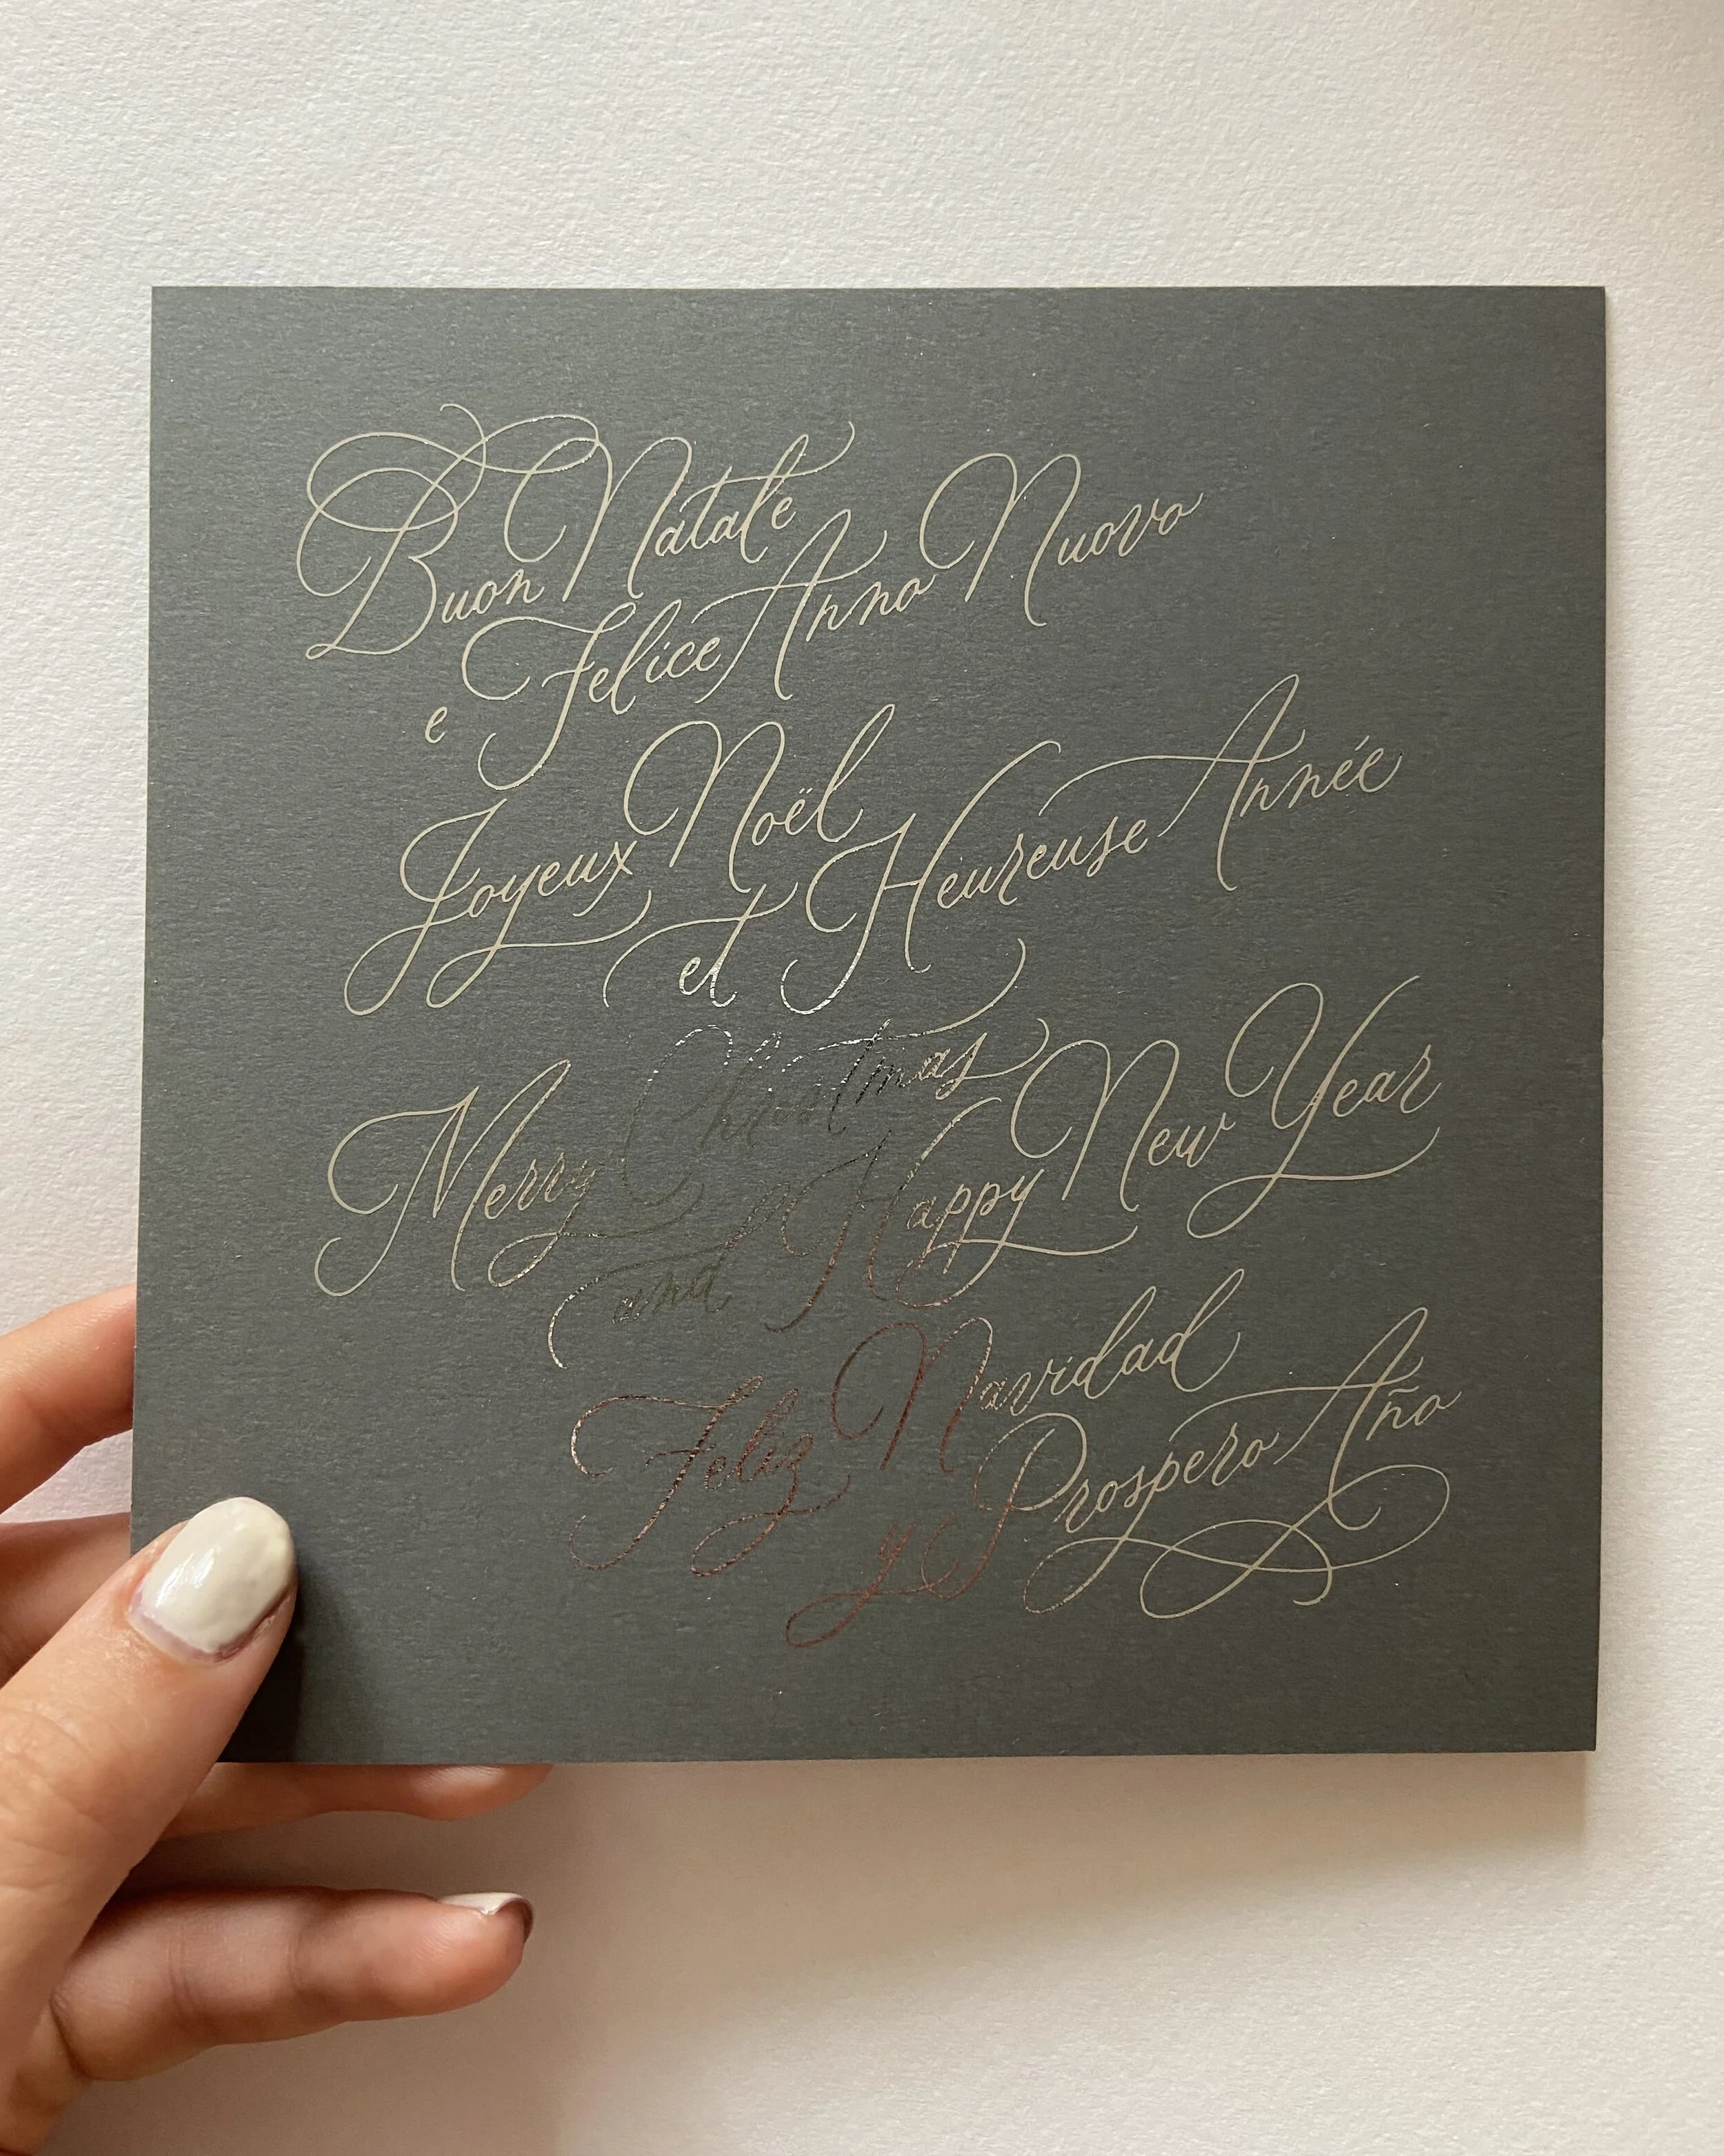 Buon Natale
e Felice Anno Nuovo
Joyeux Noël
et Heureuse Année
Merry Christmas
and Happy New Year
Feliz Navidad
y Prospero Año